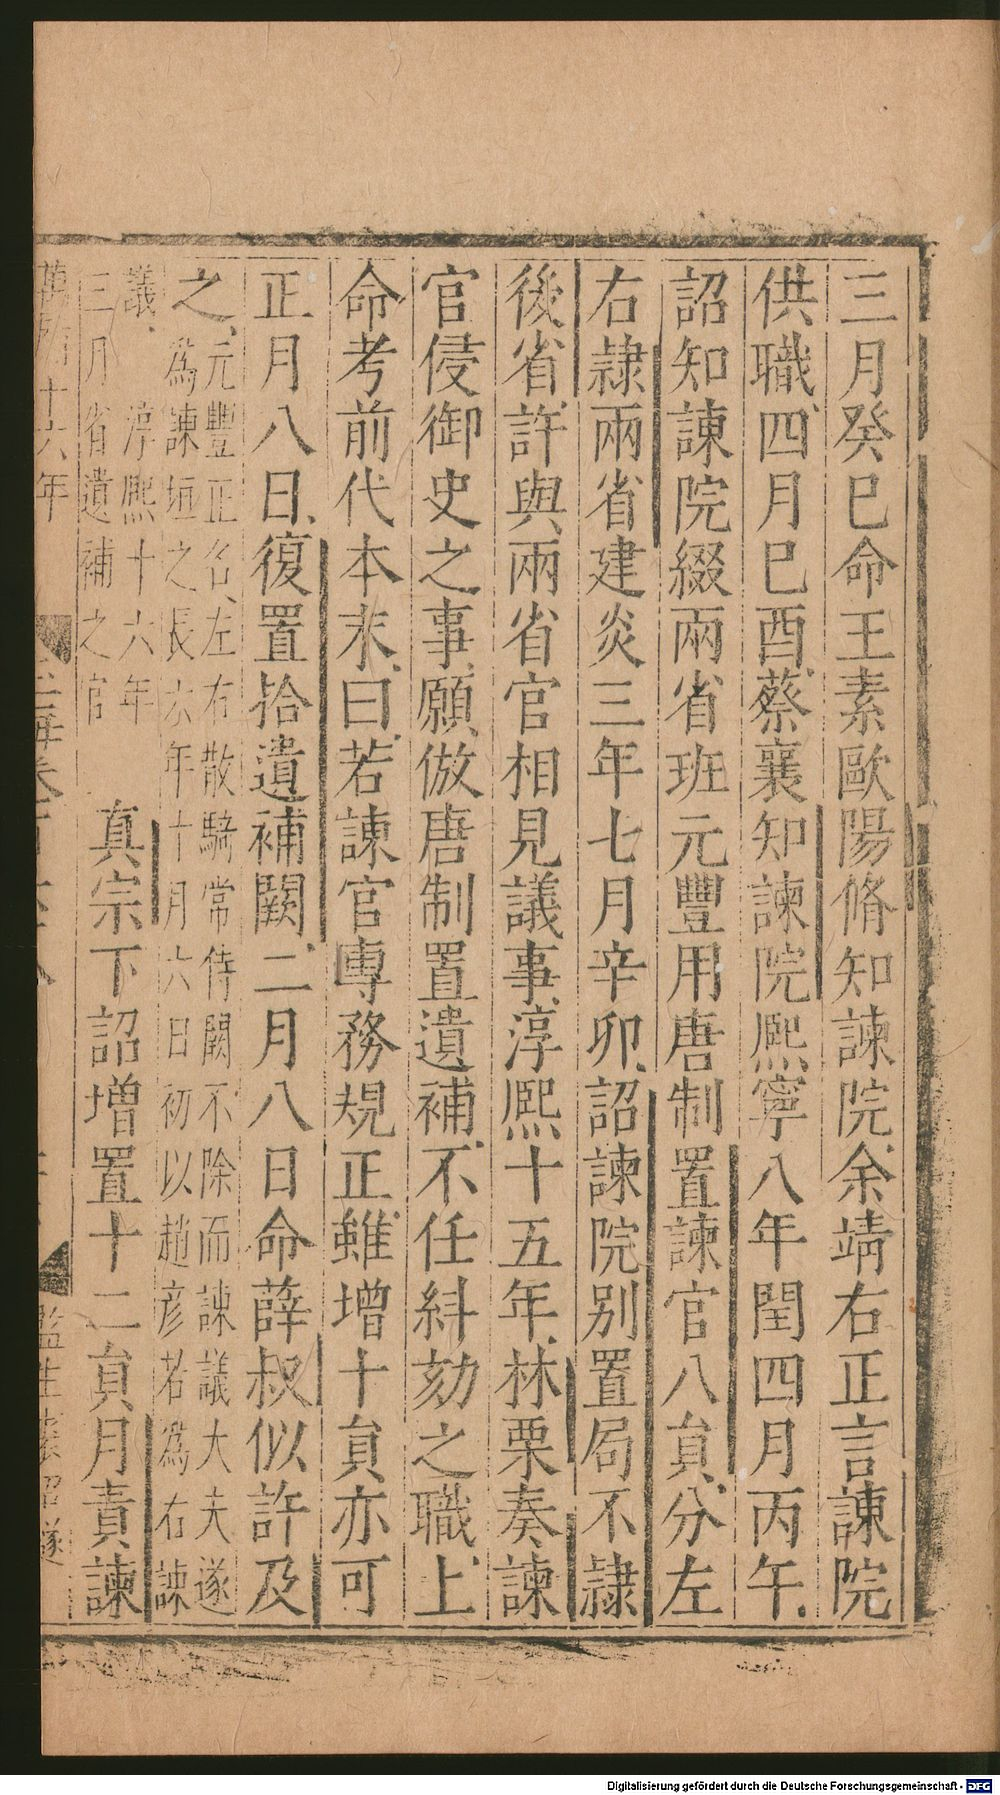 三月癸巳命王素歐陽脩知諫院余靖右正言諫院
供職四月巳酉蔡襄知諫院熙寧八年閏四月丙午
詔知諫院綴兩省班元豐用唐制置諫官八員分左
右隷兩省建炎三年七月辛卯詔諫院别置局不隷
後省許與兩省官相見議事淳熙十五年林栗奏諫
官侵御史之事願倣唐制置遺補不任糾劾之職上
命考前代本末曰若諫官專務規正雖增十員亦可
正月八日復置拾遺補闕二月八日命薛叔似許及
之
元豐正名左右散騎常侍闕不除而諫議大夫遂
爲諫垣之長六年十月六日初以趙彦若爲右諫
議
淳熙十六年
三月省遺補之官
真宗下詔增置十二員月責諫
萬曆十六年
玉海卷
監生
Digitalisierung gefördert durch die Deutsche Forschungsgemeinschaft - DFG